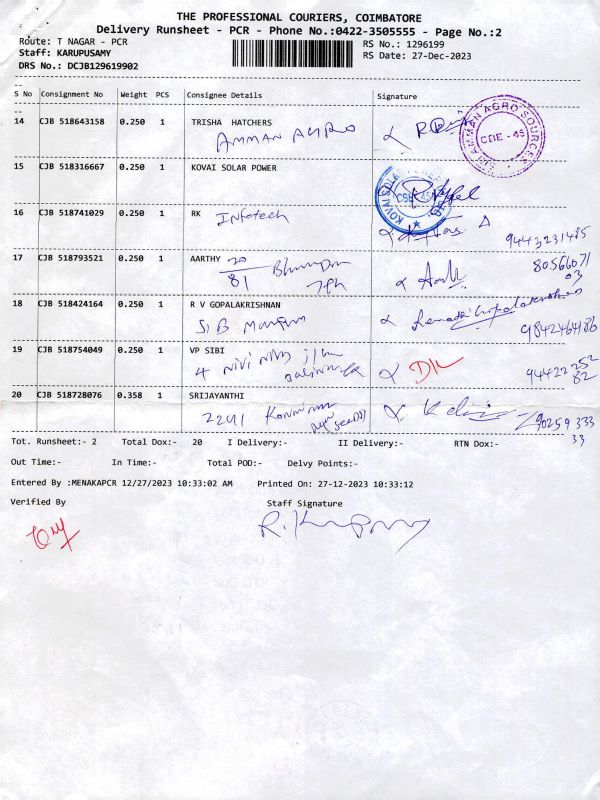 THE PROFESSIONAL COURIERS, COIMBATORE
Delivery Runsheet - PCR - Phone No.:0422-3505555 - Page No.:2
Route: T NAGAR - PCR
RS No.: 1296199
Staff: KARUPUSAMY
RS Date: 27-Dec-2023
DRS No.: DCJB129619902
S No Consignment No Weight PCS Consignee Details Signature
14 CJB 518643158 0.250 1 TRISHA HATCHERS
AMMAN AGRO
SRI AMMAN AGRO SOURCES
CBE - 45
15 CJB 518316667 0.250 1 KOVAI SOLAR POWER
KOVAI SOLAR
CBE-45
16 CJB 518741029 0.250 1 RK
Infotech
9443231485
17 CJB 518793521 0.250 1 AARTHY 20
81
80566071
03
18 CJB 518424164 0.250 1 R V GOPALAKRISHNAN
SIB
9842464186
19 CJB 518754049 0.250 1 VP SIBI
4
94422252
82
20 CJB 518728076 0.358 1 SRIJAYANTHI
2241
90259 333
33
Tot. Runsheet:- 2 Total Dox:- 20 I Delivery:- II Delivery:- RTN Dox:-
Out Time:- In Time:- Total POD:- Delvy Points:-
Entered By :MENAKAPCR 12/27/2023 10:33:02 AM Printed On: 27-12-2023 10:33:12
Verified By Staff Signature